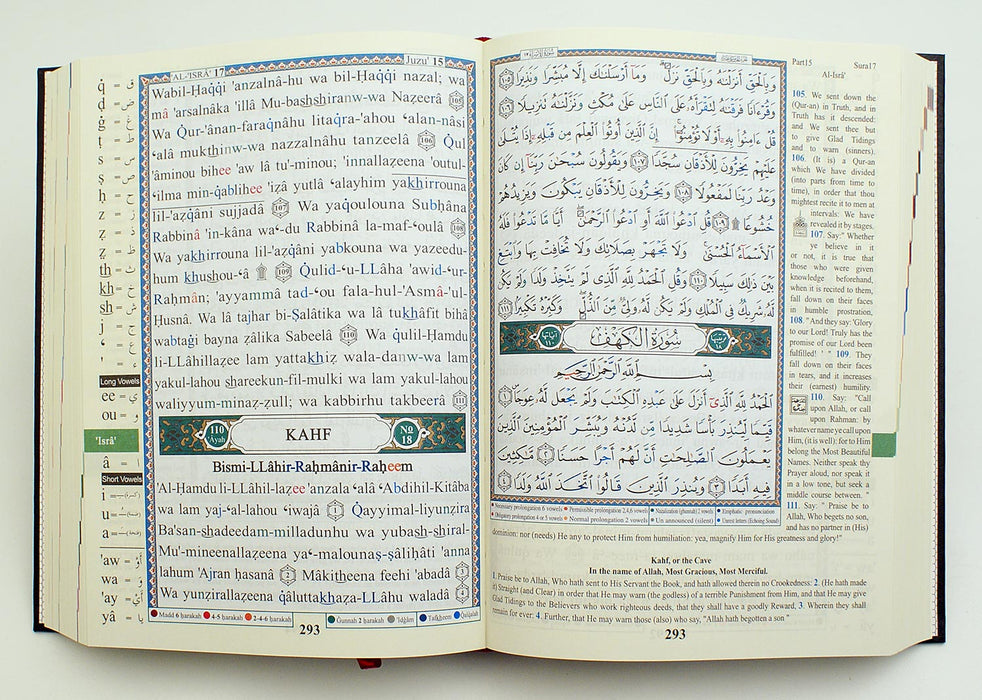 AL-'ISRÂ' 17
Juzu' 15
Wabil-Haqqi 'anzalnâ-hu wa bil-Ḥaqqi nazal; wa
mâ 'arsalnâka 'illâ Mu-bashshiranw-wa Nazeerâ 105
Wa Qur-'ânan-faraqnâhu litaqra-'ahou ʻalan-nâsi
ʻalâ mukthinw-wa nazzalnâhu tanzeelâ 106 Qul
'âminou bihee 'aw lâ tu'-minou; 'innallaẓeena 'outul-
ʻilma min-qablihee 'iẓâ yutlâ ʻalayhim yakhirrouna
lil-'aẓqâni sujjadâ 107 Wa yaqoulouna Subḥâna
Rabbinâ 'in-kâna waʻ-du Rabbinâ la-maf-ʻoulâ 108
Wa yakhirrouna lil-'aẓqâni yabkouna wa yazeedu-
hum khushou-ʻâ ۩ 109 Qulid-ʻu-LLâha 'awid-ʻur-
Raḥmân; 'ayyammâ tad-ʻou fala-hul-'Asmâ-'ul-
Ḥusnâ. Wa lâ tajhar bi-Ṣalâtika wa lâ tukhâfit bihâ
wabtaġi bayna ẓâlika Sabeelâ 110 Wa qulil-Ḥamdu
li-LLâhillaẓee lam yattakhiẓ wala-danw-wa lam
yakul-lahou shareekun-fil-mulki wa lam yakul-lahou
waliyyum-minaẓ-ẓull; wa kabbirhu takbeerâ 111
110 'Ayah
KAHF
No 18
Bismi-LLâhir-Raḥmânir-Raḥeem
'Al-Ḥamdu li-LLâhil-laẓee 'anzala ʻalâ ʻAbdihil-Kitâba
wa lam yaj-ʻal-lahou ʻiwajâ 1 Qayyimal-liyunẓira
Ba'san-shadeedam-milladunhu wa yubash-shiral-
Mu'-mineenallaẓeena yaʻ-malounaṣ-ṣâliḥâti 'anna
lahum 'Ajran ḥasanâ 2 Mâkitheena feehi 'abadâ 3
Wa yunẓirallaẓeena qâluttakhaẓa-LLâhu waladâ 4
Madd 6 ḥarakah
4-5 ḥarakah
2-4-6 ḥarakah
Ġunnah 2 ḥarakah
'Idġâm
Tafkheem
Qalqalah
293
q = ق
ḍ = ض
ġ = غ
ṭ = ط
ṣ = ص
ḥ = ح
z = ز
ẓ = ذ
ẓ = ظ
th = ث
kh = خ
sh = ش
j = ج
ʻ = ع
' = ء
Long Vowels
ee = ي
ou = و
'Isrâ'
â = ا
Short Vowels
i =
u =
a =
'aw = أَوْ
wa = وَ
'ay = أَيْ
yâ = يا
وَبِالْحَقِّ أَنزَلْنَاهُ وَبِالْحَقِّ نَزَلَ ۗ وَمَا أَرْسَلْنَاكَ إِلَّا مُبَشِّرًا وَنَذِيرًا ١٠٥
وَقُرْءَانًا فَرَقْنَاهُ لِتَقْرَأَهُ عَلَى النَّاسِ عَلَىٰ مُكْثٍ وَنَزَّلْنَاهُ تَنزِيلًا ١٠٦
قُلْ ءَامِنُوا بِهِ أَوْ لَا تُؤْمِنُوا ۚ إِنَّ الَّذِينَ أُوتُوا الْعِلْمَ مِن قَبْلِهِ إِذَا يُتْلَىٰ
عَلَيْهِمْ يَخِرُّونَ لِلْأَذْقَانِ سُجَّدًا ١٠٧ وَيَقُولُونَ سُبْحَانَ رَبِّنَا إِن كَانَ
وَعْدُ رَبِّنَا لَمَفْعُولًا ١٠٨ وَيَخِرُّونَ لِلْأَذْقَانِ يَبْكُونَ وَيَزِيدُهُمْ
خُشُوعًا ۩ ١٠٩ قُلِ ادْعُوا اللَّهَ أَوِ ادْعُوا الرَّحْمَٰنَ ۖ أَيًّا مَّا تَدْعُوا فَلَهُ
الْأَسْمَاءُ الْحُسْنَىٰ ۚ وَلَا تَجْهَرْ بِصَلَاتِكَ وَلَا تُخَافِتْ بِهَا وَابْتَغِ
بَيْنَ ذَٰلِكَ سَبِيلًا ١١٠ وَقُلِ الْحَمْدُ لِلَّهِ الَّذِي لَمْ يَتَّخِذْ وَلَدًا وَلَمْ يَكُن
لَّهُ شَرِيكٌ فِي الْمُلْكِ وَلَمْ يَكُن لَّهُ وَلِيٌّ مِّنَ الذُّلِّ ۖ وَكَبِّرْهُ تَكْبِيرًا ١١١
ترتيبها ١٨
سُورَةُ الْكَهْفِ
آياتها ١١٠
بِسْمِ اللَّهِ الرَّحْمَٰنِ الرَّحِيمِ
الْحَمْدُ لِلَّهِ الَّذِي أَنزَلَ عَلَىٰ عَبْدِهِ الْكِتَابَ وَلَمْ يَجْعَل لَّهُ عِوَجًا ١
قَيِّمًا لِّيُنذِرَ بَأْسًا شَدِيدًا مِّن لَّدُنْهُ وَيُبَشِّرَ الْمُؤْمِنِينَ الَّذِينَ
يَعْمَلُونَ الصَّالِحَاتِ أَنَّ لَهُمْ أَجْرًا حَسَنًا ٢ مَّاكِثِينَ
فِيهِ أَبَدًا ٣ وَيُنذِرَ الَّذِينَ قَالُوا اتَّخَذَ اللَّهُ وَلَدًا ٤
Necessary prolongation 6 vowels
Permissible prolongation 2,4,6 vowels
Nazalization (ghunnah) 2 vowels
Emphatic pronunciation
Obligatory prolongation 4 or 5 vowels
Normal prolongation 2 vowels
Un announced (silent)
Unrest letters (Echoing Sound)
Part15
Sura17
Al-Isrâ'
105. We sent down the
(Qur-an) in Truth, and in
Truth has it descended:
and We sent thee but
to give Glad Tidings
and to warn (sinners).
106. (It is) a Qur-an
which We have divided
(into parts from time to
time), in order that thou
mightest recite it to men at
intervals: We have
revealed it by stages.
107. Say:" Whether
ye believe in it
or not, it is true that
those who were given
knowledge beforehand,
when it is recited to them,
fall down on their faces
in humble prostration,
108. "And they say:'Glory
to our Lord! Truly has the
promise of our Lord been
fulfilled! ' " 109. They
fall down on their faces
in tears, and it increases
their (earnest) humility.
110. Say: "Call
upon Allah, or call
upon Rahman: by
whatever name ye call upon
Him, (it is well): for to Him
belong the Most Beautiful
Names. Neither speak thy
Prayer aloud, nor speak it
in a low tone, but seek a
middle course between. "
111. Say: " Praise be to
Allah, Who begets no son,
and has no partner in (His)
dominion: nor (needs) He any to protect Him from humiliation: yea, magnify Him for His greatness and glory!"
Kahf, or the Cave
In the name of Allah, Most Gracious, Most Merciful.
1. Praise be to Allah, Who hath sent to His Servant the Book, and hath allowed therein no Crookedness: 2. (He hath made
it) Straight (and Clear) in order that He may warn (the godless) of a terrible Punishment from Him, and that He may give
Glad Tidings to the Believers who work righteous deeds, that they shall have a goodly Reward, 3. Wherein they shall
remain for ever: 4. Further, that He may warn those (also) who say, "Allah hath begotten a son."
293